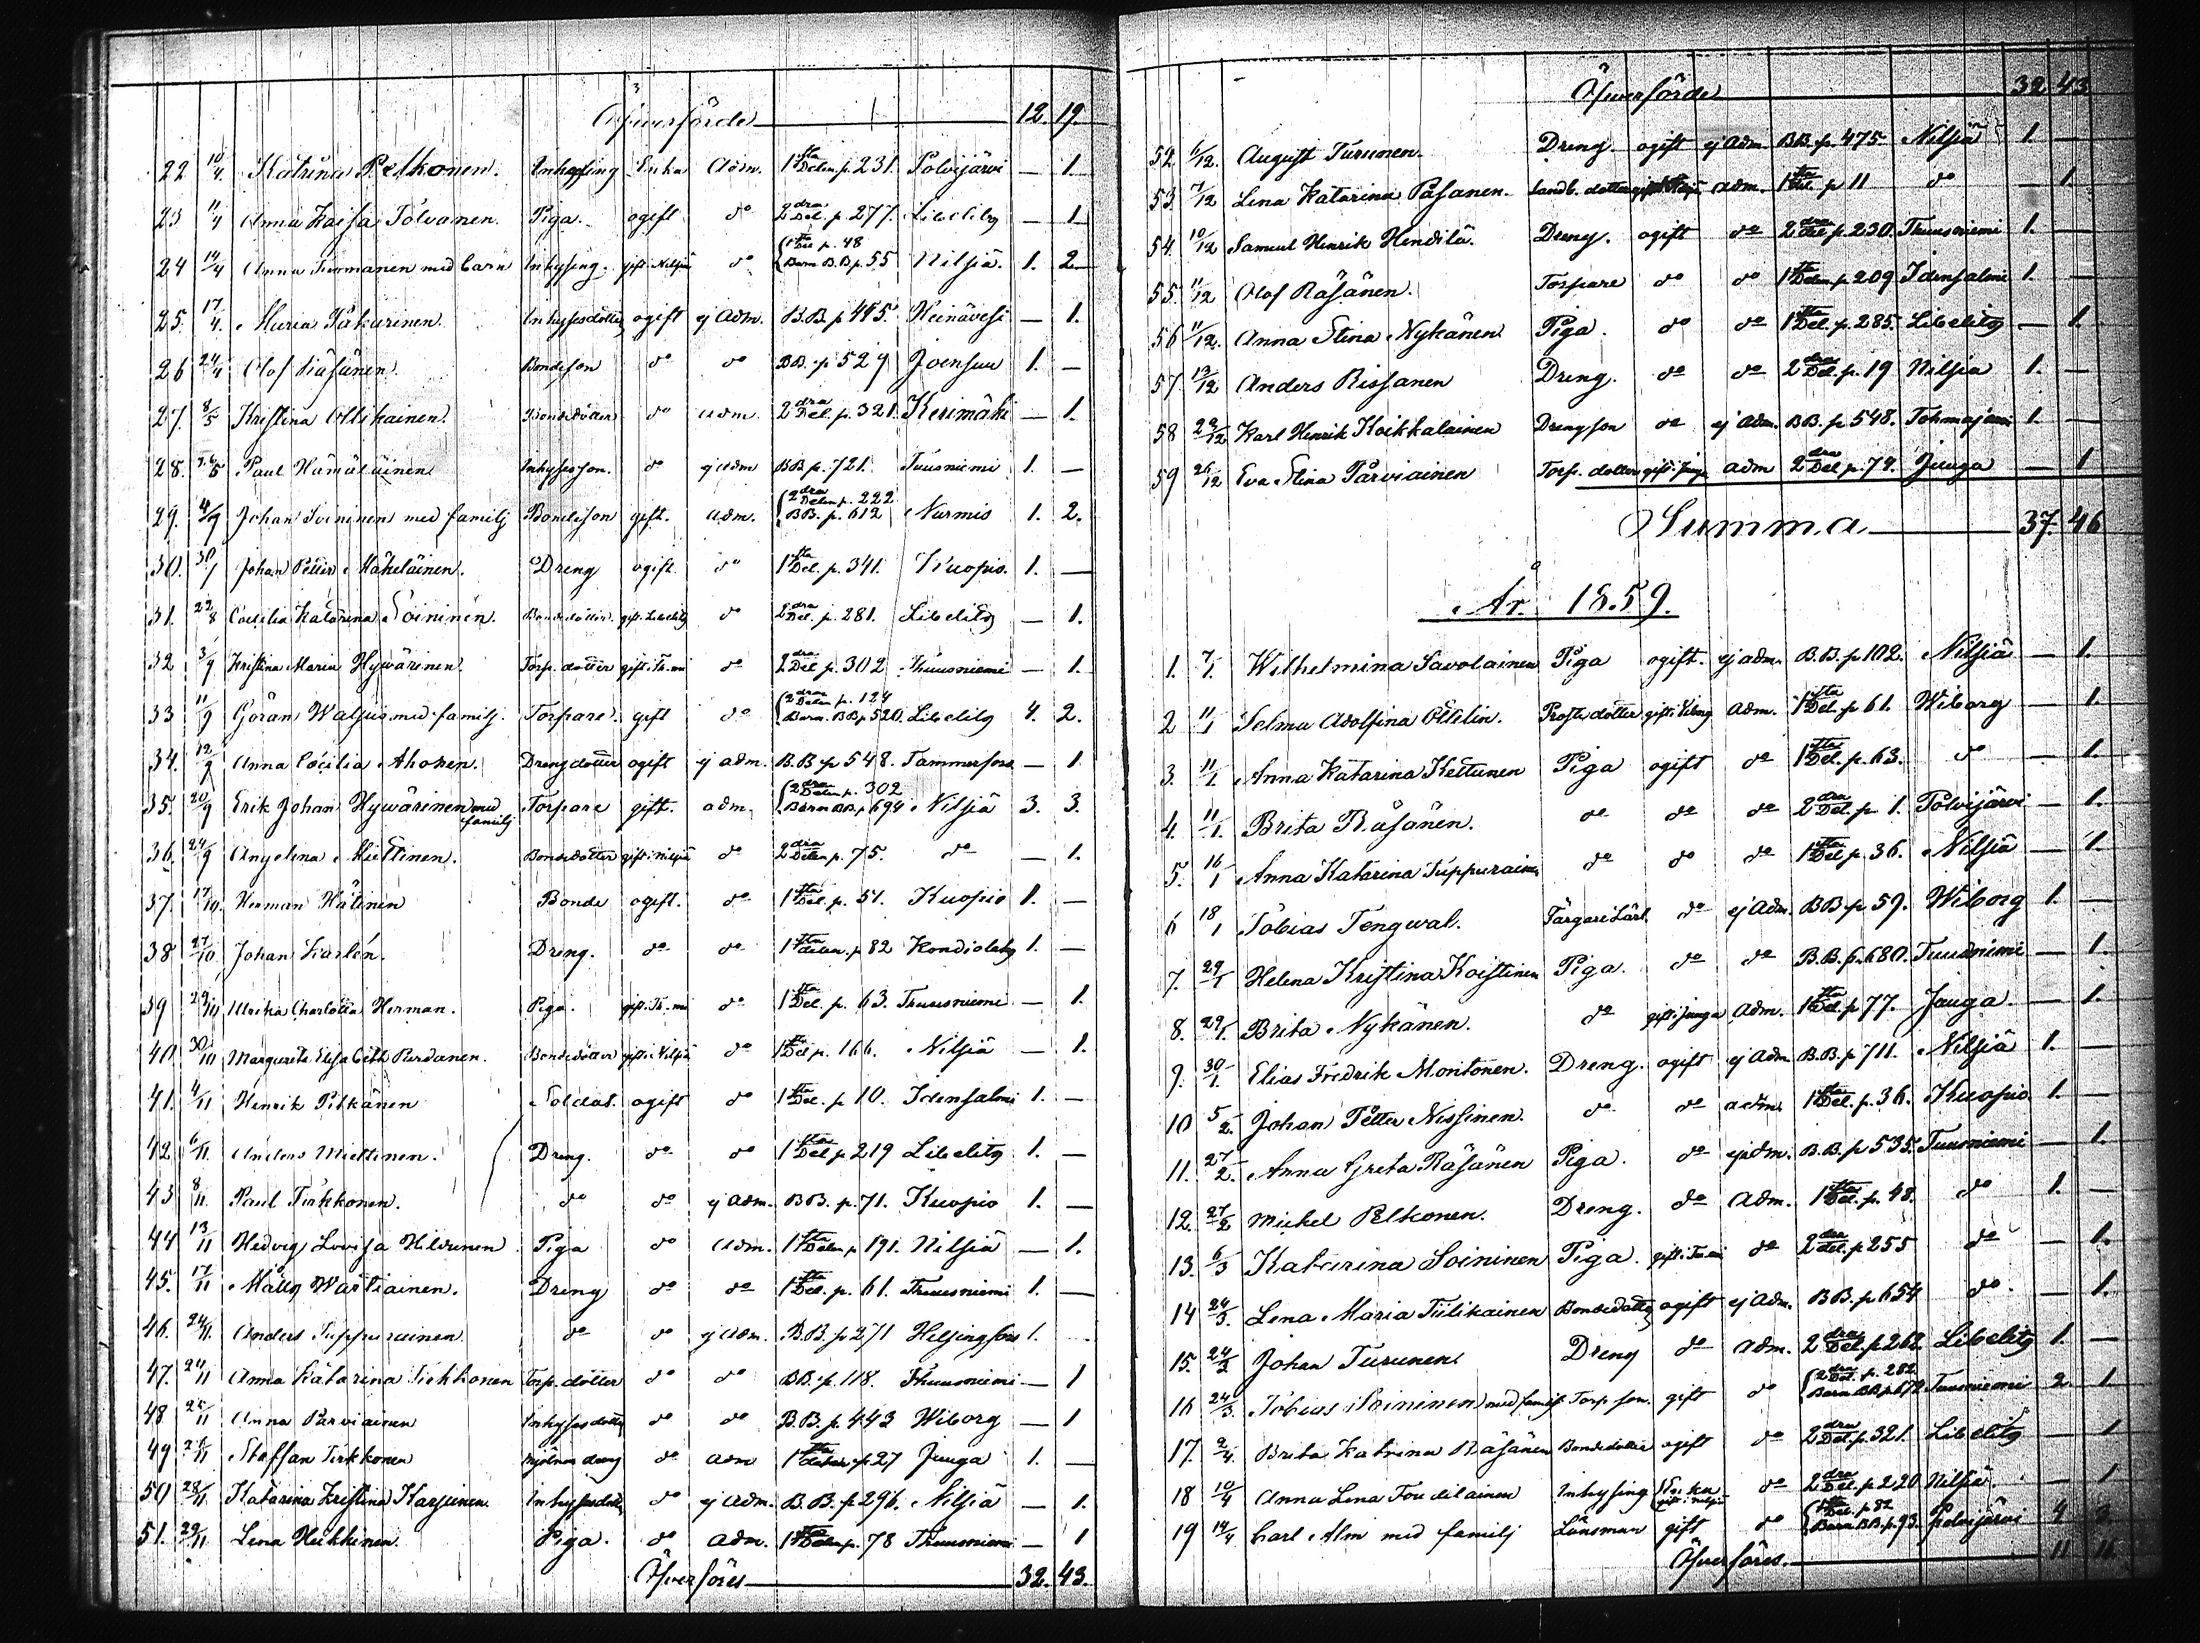 Öfverförde 12. 19.
22 10/4. Katrina Pelkonen. Inhysing Enka Adm. 1sta Delen p. 231. Polvijärvi — 1.
23 11/4 Anna Kaisa Tolvanen. Piga. ogift do 2dra Del. p. 277. Libelitz — 1.
24 14/4 Anna Turmanen med barn Inhysing. gift. Nilsiä do 1sta Del p. 48 Barn B.B. p. 55 Nilsiä. 1. 2.
25. 17/4. Maria Kakurinen. Inhysesdotter ogift ej Adm. B.B. p 445. Heinävesi — 1.
26 24/4 Olof Räsänen. Bondeson do do BB. p 529 Joensuu 1. —
27. 8/5 Kristina Ollikainen. Bondedotter do adm. 2dra Del. p. 321. Kerimäki — 1.
28. /5 Paul Hämäläinen Inhysesson. do ej adm BB p. 721. Tuusniemi 1. —
29. 4/9 Johan Soininen med familj Bondeson gift. adm. 2dra Delen p. 222 BB. p. 612 Nurmis 1. 2.
30. Johan Petter Mähöläinen. Dreng ogift. do 1sta Del. p. 341. Kuopio. 1. —
31. 22/8 Caecilia Katarina Soininen. Bondedotter. gift. Libelitz do 2dra Del. p. 281. Libelitz — 1.
32 3/9 Kristina Maria Hyvärinen. Torp. dotter gift. Th.mi do 2dra Del p. 302 Thuusniemi — 1.
33 11/9 Göran Walsius med familj. Torpare gift do 2dra Delen p. 124 Barn. BB p 520. Libelitz 4. 2.
34. 12/9 Anna Cæcilia Ahonen. Drengdotter ogift ej adm. B.B p 548. Tammerfors — 1
35. 20/9 Erik Johan Hyvärinen med familj Torpare gift. adm. 2dra Delen p. 302 Barn BB. p 694 Nilsiä 3. 3.
36. 24/9 Angelina Miettinen. Bondedotter gift. Nilsiä do 2dra Delen p. 75. do — 1.
37. 17/10. Herman Hätinen Bonde ogift. do 1sta Del. p. 51. Kuopio 1. —
38 27/10. Johan Karlén. Dreng. do do 1sta delen. p. 82 Kondiolaks 1. —
39 29/10 Ulrika Charlotta Herman. Piga. gift. Th.mi do 1sta Del. p. 63. Thuusniemi — 1.
40. 30/10 Margareta Elisabeth Purdanen. Bondedotter gift i Nilsiä do 1sta Del p. 166. Nilsiä — 1.
41. 4/11 Henrik Pitkänen Soldat. ogift do 1sta Del. p. 10. Idensalmi 1. —
42. 6/11. Anders Miettinen. Dreng. do do 1sta Del p 219 Libelitz 1. —
43 8/11 Paul Tirkkonen. do do ej adm. BB. p. 71. Kuopio 1. —
44 13/11 Hedvig Lovisa Hildunen Piga do adm. 1sta Delen p 191. Nilsiä — 1.
45. 17/11 Mats Wartiainen. Dreng do do 1sta Del. p. 61. Thuusniemi 1. —
46. 24/11. Anders Tuppurainen do do ej adm. B.B. p 271 Helsingfors 1.
47. 24/11 Anna Katarina Tirkkonen Torp. dotter do do BB. p. 118. Thuusniemi — 1
48 25/11 Anna Parviainen Inhysesdotter do do B.B. p. 443 Wiborg — 1
49 /11 Staffan Tirkkonen Mjölnare dreng do adm 1sta delen p. 27 Juuga 1. —
50 28/11 Katarina Kristina Karjainen Inhysesdotter do ej adm. B.B. p. 296. Nilsiä — 1.
51. 29/11 Lena Heikkinen. Piga. do adm. 1sta Delen p. 78 Thuusniemi — 1
Öfverföres 32. 43.
Öfverförde 32. 43
52. 6/12. August Turunen. Dreng. ogift ej adm BB. p. 475. Nilsiä 1. —
53 7/12 Lena Katarina Pasanen. Landb. dotter adm. 1sta Del. p 11 do — 1.
54. 10/12 Samuel Henrik Hendilä. Dreng. ogift do 2dra Del p. 230. Thuusniemi 1. —
55. 11/12 Olof Räsänen. Torpare do do 1sta Delen p 209 Idensalmi 1. —
56 11/12. Anna Stina Nykänen Piga. do do 1sta Del. p. 285. Libelitz — 1.
57. 13/12 Anders Rissanen Dreng. do do 2dra Del. p. 19 Nilsiä 1. —
58 23/12 Karl Henrik Koikkalainen Drengson do ej adm. BB. p. 548. Tohmajärvi 1. —
59 26/12 Eva Stina Parviainen Torp. dotter gift. Juuga adm 2dra Del p. 79. Juuga — 1
Summa 37. 46
År 1859.
1. 7/1. Wilhelmina Savolainen Piga ogift. ej adm. B.B. p 102. Nilsiä — 1.
2 11/1 Selma Adolfina Öttelin. Prostedotter gift. Viborg adm. 1sta Del. p 61. Wiborg — 1.
3. 11/1 Anna Katarina Kettunen Piga ogift do 1sta Del. p. 63. do — 1.
4. 11/1. Brita Räsänen. do do do 2dra Del. p 1. Polvijärvi — 1.
5. 16/1 Anna Katarina Tuppurainen do do do 1sta Del p. 36. Nilsiä — 1.
6 18/1 Tobias Tengwal. Färgare Lärl. do ej adm. BB p 59. Wiborg 1. —
7. 29/1 Helena Kristina Koistinen Piga. do do B.B. p. 680. Tuusniemi — 1.
8. 29/1. Brita Nykänen. do gift. Juuga adm. 1sta Del p 77. Juuga. — 1.
9. 30/1. Elias Fredrik Montonen. Dreng. ogift ej adm B.B. p 711. Nilsiä 1. —
10 5/2. Johan Petter Nissinen. do do adm. 1sta Del. p. 36. Kuopio 1. —
11. 27/2. Anna Greta Räsänen Piga. do ej adm. B.B. p 535. Tuusniemi — 1.
12. 27/2 Mickel Pelkonen. Dreng. do adm. 1sta Del. p. 48. do 1. —
13. 6/3 Katarina Soininen Piga. gift. do 2dra del. p 255 do — 1.
14 24/3. Lena Maria Tiilikainen Bondedotter ogift ej adm. BB. p 654 do. — 1.
15. 24/3 Johan Turunen Dreng do adm. 2dra Del p 262 Libelitz 1. —
16 24/3. Tobias Soininen med familj Torp son. gift do 2dra Del. p. 282 Barn BB. p 672 Tuusniemi 2. 1
17. 2/4. Brita Katrina Räsänen Bondedotter ogift do 2dra Del. p. 321. Libelitz — 1
18 10/4 Anna Lena Toudilainen Inhysing Enka gift. Nilsiä do 2dra Del. p 220 Nilsiä. — 1
19 14/4 Carl Alm med familj Länsman gift do 1sta Del. p 82 Barn BB. p. 93. Polvijärvi 4 3
Öfverföres. 11 11